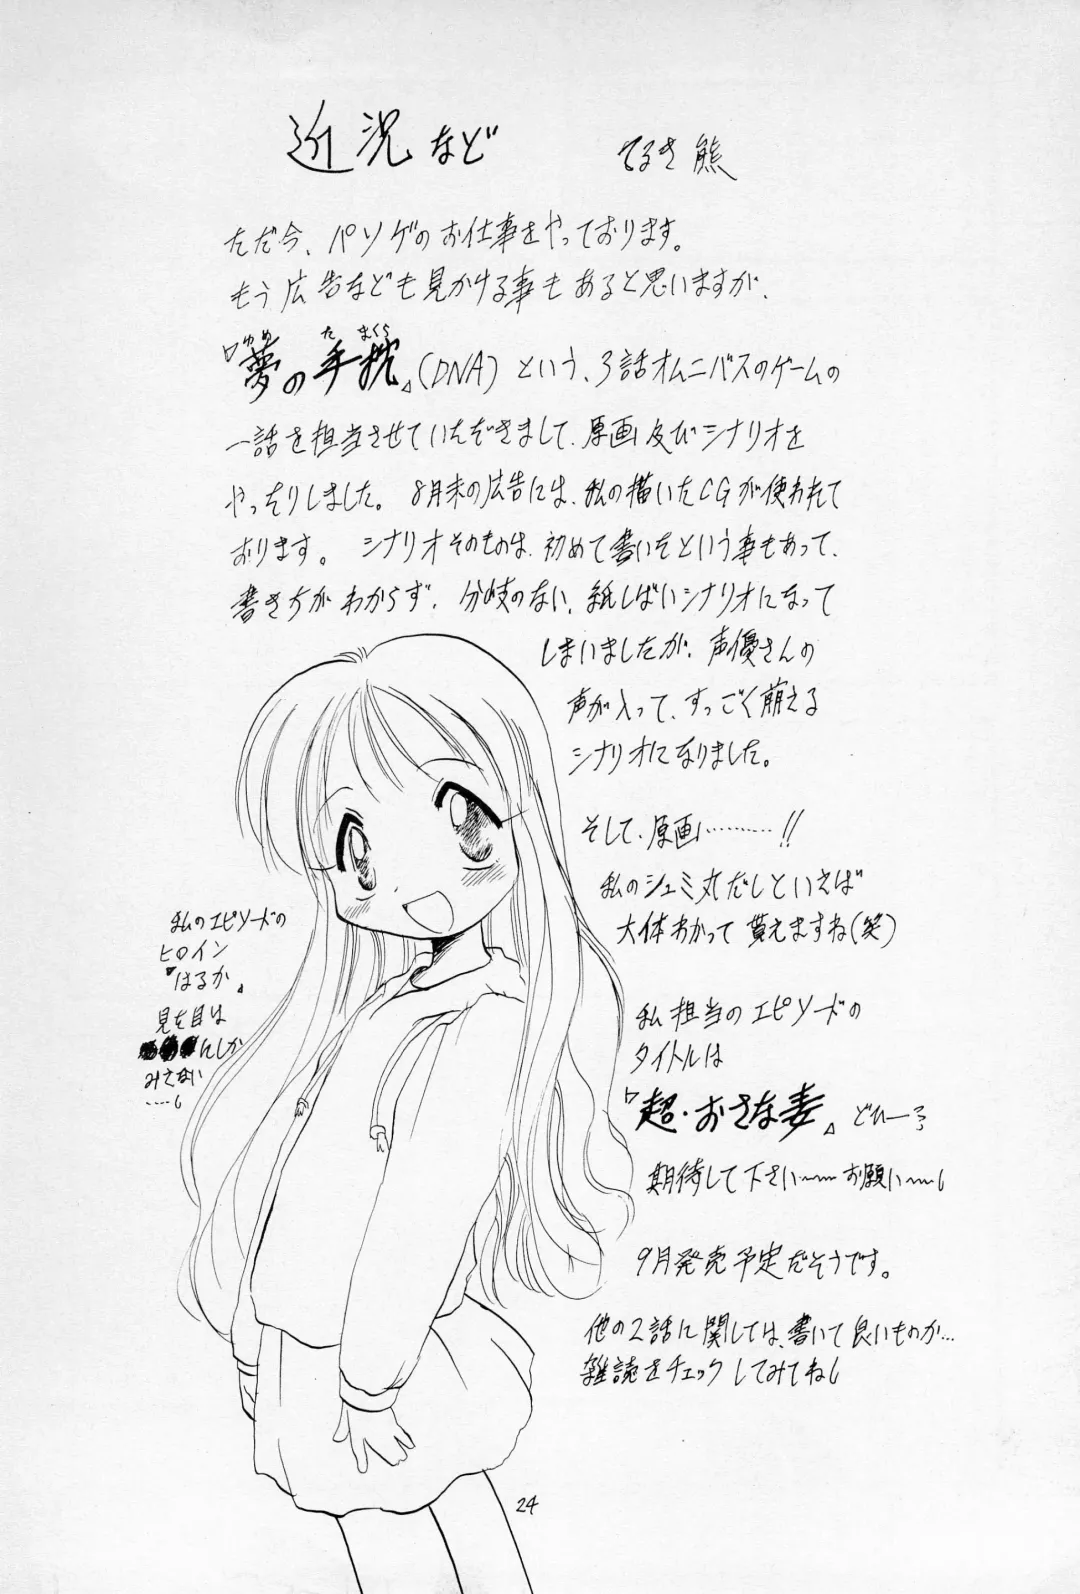 近況など
てるき熊
ただ今、パソゲのお仕事をやっております。
もう広告なども見かける事もあると思いますが、
『夢の手枕』(DNA)という、3話オムニバスのゲームの
ゆめ た まくら
一話を担当させていただきまして、原画及びシナリオを
やっちりしました。8月末の広告には、私の描いたCGが使われて
おります。シナリオそのものは、初めて書いたという事もあって、
書き方がわからず、分岐のない、紙しばいシナリオになって
しまいましたが、声優さんの
声が入って、すっごく萌える
シナリオになりました。
そして、原画………!!
私のシュミ丸だしといえば
大体わかって貰えますね(笑)
私のエピソードの
ヒロイン
『はるか』
見た目は
にしか
みえない
……
私担当のエピソードの
タイトルは
『超・おさな妻』どひー
期待して下さい〜〜お願い〜〜
9月発売予定だそうです。
他の2話に関しては、書いて良いものか…
雑誌をチェックしてみてね
24